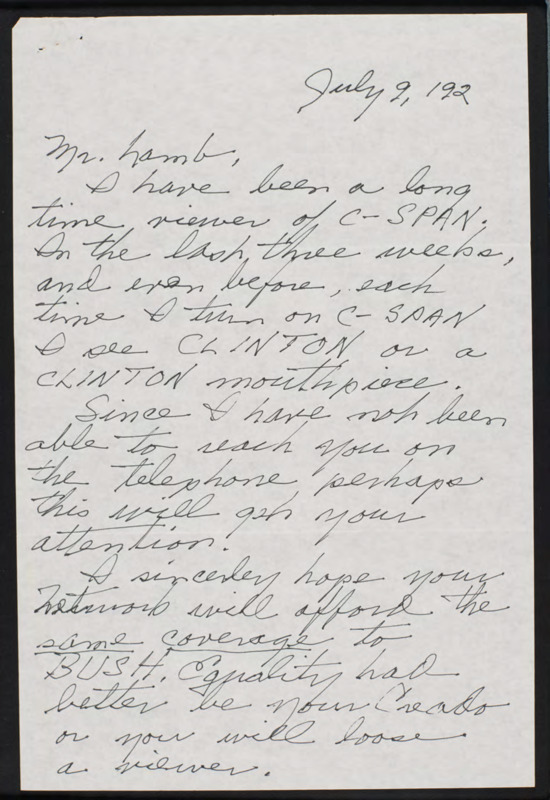 July 9, 192
Mr. Lamb,
I have been a long
time viewer of C-SPAN.
In the last, three weeks,
and even before, each
time I turn on C-SPAN
I see CLINTON or a
CLINTON mouthpiece.
Since I have not been
able to reach you on
the telephone perhaps
this will get your
attention.
I sincerley hope your
Network will afford the
same coverage to
BUSH. Equality had
better be your Creado
or you will loose
a viewer.